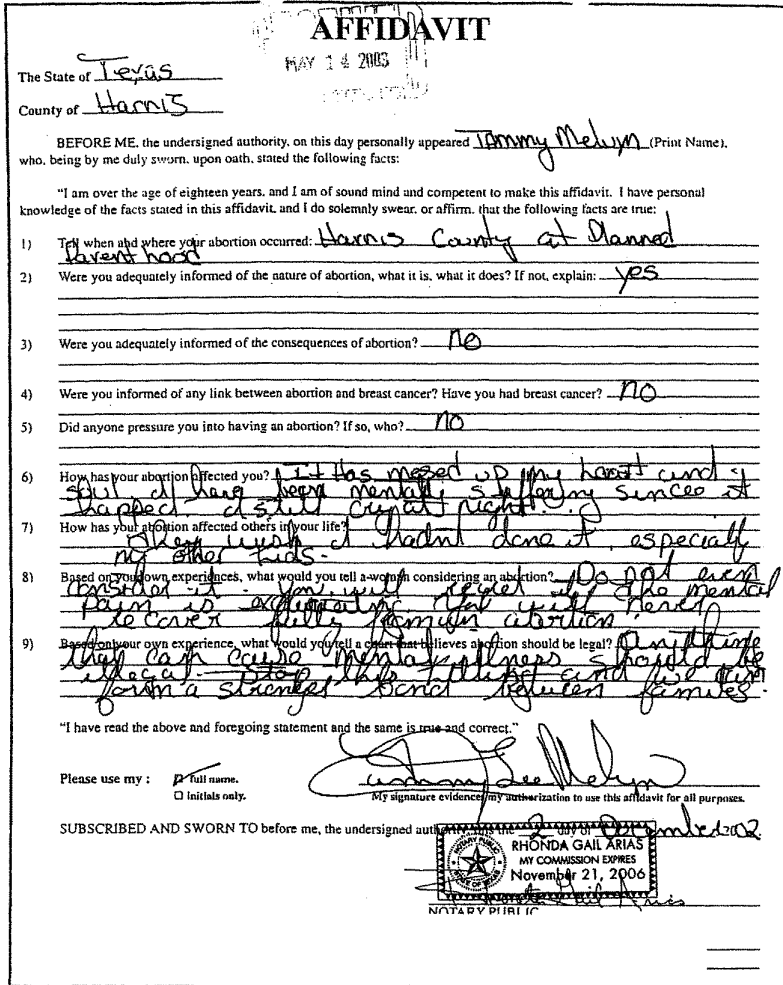 AFFIDAVIT
MAY 14 2003
The State of Texas
County of Harris
BEFORE ME, the undersigned authority, on this day personally appeared Tammy Melvyn (Print Name),
who, being by me duly sworn, upon oath, stated the following facts:
"I am over the age of eighteen years, and I am of sound mind and competent to make this affidavit. I have personal
knowledge of the facts stated in this affidavit, and I do solemnly swear, or affirm, that the following facts are true:
1) Tell when and where your abortion occurred: Harris County at Planned
Parent hood
2) Were you adequately informed of the nature of abortion, what it is, what it does? If not, explain: yes
3) Were you adequately informed of the consequences of abortion? no
4) Were you informed of any link between abortion and breast cancer? Have you had breast cancer? no
5) Did anyone pressure you into having an abortion? If so, who? no
6) How has your abortion affected you? It Has messed up my heart and
soul I have been mentally suffering sincee it
happed. I still cry at night.
7) How has your abortion affected others in your life?
They wish I hadnt done it, especially
my other kids.
8) Based on your own experiences, what would you tell a woman considering an abortion? Do not even
consider it. You will regret it. The mental
pain is You will never
recover fully from an abortion.
9) Based on your own experience, what would you tell a court that believes abortion should be legal? Anything
that can cause mental illness should be
illegal. Stop this killing and we can
form a stronger bond between families.
"I have read the above and foregoing statement and the same is true and correct."
Please use my : full name.
initials only.
My signature evidences my authorization to use this affidavit for all purposes.
SUBSCRIBED AND SWORN TO before me, the undersigned authority, this the 2 day of December 2002.
NOTARY PUBLIC
STATE OF TEXAS
RHONDA GAIL ARIAS
MY COMMISSION EXPIRES
November 21, 2006
Rhonda Gail Arias
NOTARY PUBLIC